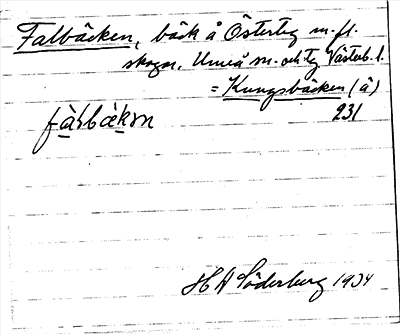 Falbäcken, bäck å Östertg m. fl.
skogar. Umeå sn. och tg, Västerb. l.
= Kungsbäcken (ä)
231
fàlbæ̀kən
H A Söderberg 1934